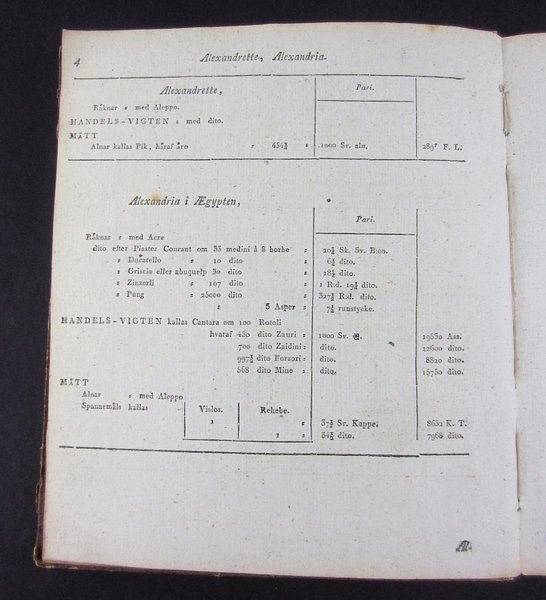 4 Alexandrette, Alexandria.
Alexandrette, Pari.
Räknar s med Aleppo.
HANDELS-VIGTEN s med dito.
MÅTT
Alnar kallas Pik, håraf äro s 454½ s 1000 Sv. aln. 289⁷ F. L.
Alexandria i Ægypten,
Pari.
Räknar s med Acre
dito efter Piaster Courant om 33 medini å 8 borbe s Sk. Sv. Bco.
s Ducatello s 10 dito s dito.
s Griscio eller abuquelp 30 dito s dito.
s Zinzerli s 107 dito s 1 R:d. dito.
s Pung s 25000 dito s R:d. dito.
1 s 3 Asper s runstycke.
HANDELS-VIGTEN kallas Cantara om 100 Rotoli
hvaraf 450 dito Zauri s 1000 Sv. 19530 Ass.
700 dito Zaidini s dito. 12600 dito.
dito Forsori s dito. 8820 dito.
568 dito Mine s dito. 15750 dito.
MÅTT
Alnar s med Aleppo
Spannemåls kallas Vislos. Rehebe.
1 s 37½ Sv. Kappe. 8632 K. T.
1 s 34½ dito. 7968 dito.
Al-